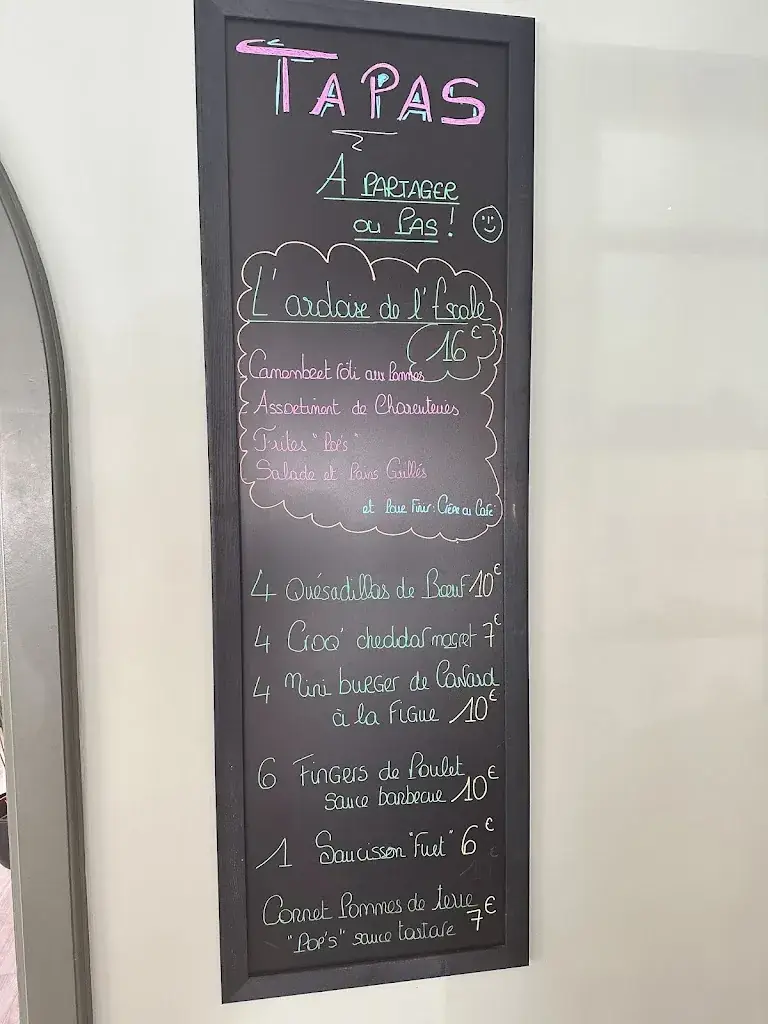 TAPAS
A PARTAGER
OU PAS!
L'ardoise de l'Escale
16€
Camembert rôti aux Pommes
Assortiment de Charcuteries
Frites "Pop's"
Salade et Pains Grillés
et Pour Finir: Crêpe ou Café
4 Quésadillas de Bœuf 10€
4 Croq' cheddar magret 7€
4 Mini burger de Canard
à la Figue 10€
6 Fingers de Poulet
sauce barbecue 10€
1 Saucisson "Fuet" 6€
Cornet Pommes de terre
"Pop's" sauce tartare 7€